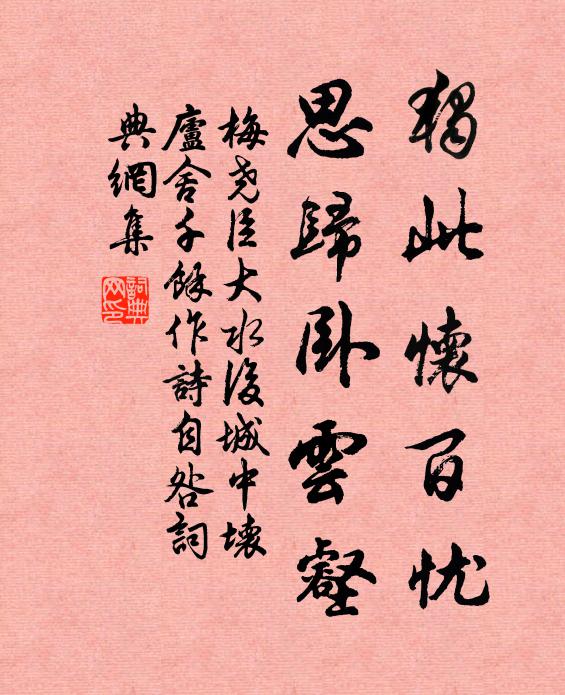 獨此懷百忧
思歸卧雲壑
梅堯臣大水後城中壞
廬舍千餘作詩自咎詞
典網集
詞典
网印